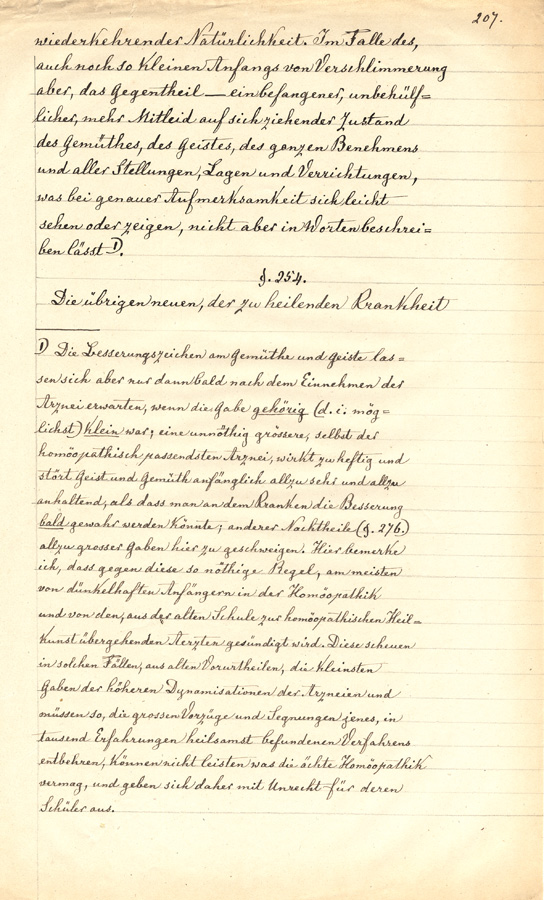 207.
wiederkehrender Natürlichkeit. Im Falle des,
auch noch so kleinen Anfangs von Verschlimmerung
aber, das Gegentheil — ein befangener, unbehülf=
licher, mehr Mitleid auf sich ziehender Zustand
des Gemüthes, des Geistes, des ganzen Benehmens
und aller Stellungen, Lagen und Verrichtungen,
was bei genauer Aufmerksamkeit sich leicht
sehen oder zeigen, nicht aber in Worten beschrei=
ben lässt 1).
§. 254.
Die übrigen neuen, der zu heilenden Krankheit
1) Die Besserungszeichen am Gemüthe und Geiste las=
sen sich aber nur dann bald nach dem Einnehmen der
Arznei erwarten, wenn die Gabe gehörig (d. i. mög=
lichst) klein war; eine unnöthig grössere, selbst der
homöopathisch passendsten Arznei, wirkt zu heftig und
stört Geist und Gemüth anfänglich allzu sehr und allzu
anhaltend, als dass man an dem Kranken die Besserung
bald gewahr werden könnte; anderer Nachtheile (§. 276.)
allzu grosser Gaben hier zu geschweigen. Hier bemerke
ich, dass gegen diese so nöthige Regel, am meisten
von dünkelhaften Anfängern in der Homöopathik
und von den, aus der alten Schule zur homöopathischen Heil=
kunst übergehenden Aerzten gesündigt wird. Diese scheuen
in solchen Fällen, aus alten Vorurtheilen, die kleinsten
Gaben der höheren Dynamisationen der Arzneien und
müssen so, die grossen Vorzüge und Segnungen jenes, in
tausend Erfahrungen heilsamst befundenen Verfahrens
entbehren, können nicht leisten was die ächte Homöopathik
vermag, und geben sich daher mit Unrecht für deren
Schüler aus.